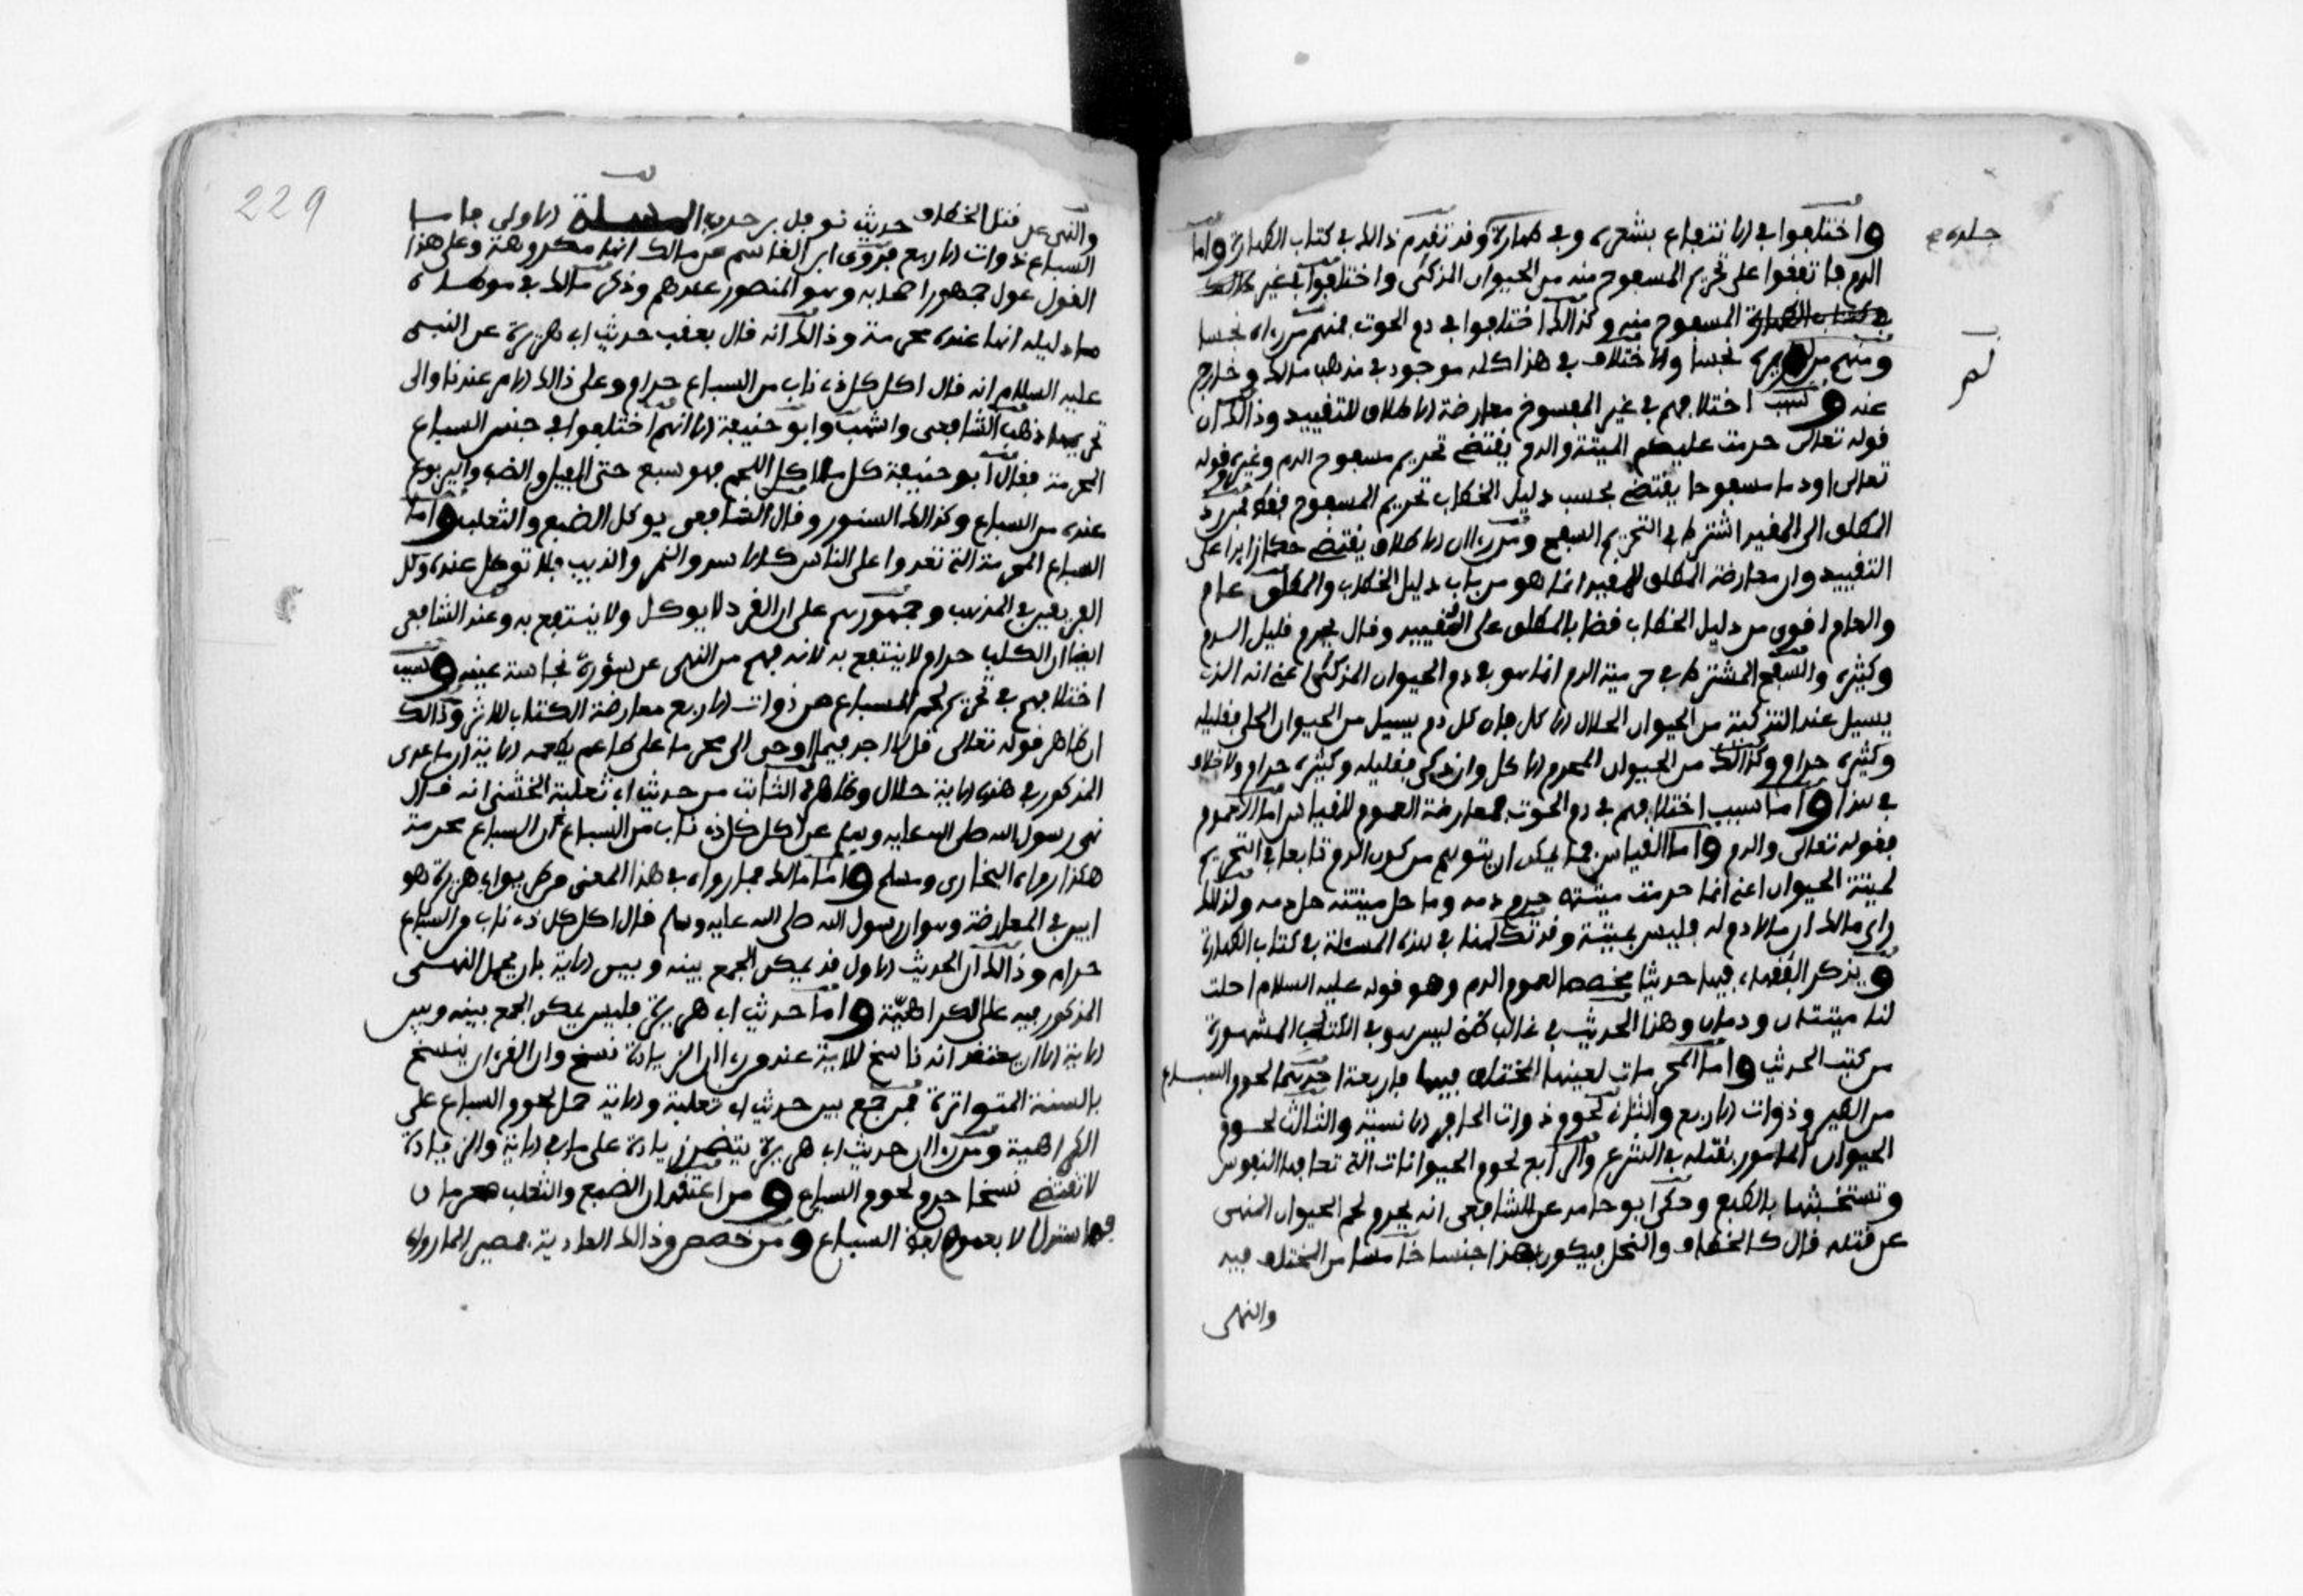 واختلفوا في الانتفاع بشعره وفي طهارة وقد تقدم ذالك في كتاب الطهارة واما
جلده
الدم فاتفقوا على تحريم المسفوح منه من الحيوان المذكى واختلفوا في غير
المسفوح منه وكذالك اختلفوا في دم الحوت فمنهم من راه نجسا
ومنهم من لم يره نجسا والاختلاف في هذا كله موجود في مذهب مالك وخارج
عنه وسبب اختلافهم في غير المفسوح معارضة الاطلاق للتقييد وذالك ان
قوله تعالى حرمت عليكم الميتة والدم يقتضي تحريم مسفوح الدم وغيره وقوله
تعالى او دما مسفوحا يقتضي بحسب دليل الخطاب تحريم المسفوح فقط فمن رد
المطلق الى المقيد اشترط في التحريم السفح ومن راى ان الاطلاق يقتضي حكما زايدا على
التقييد وان معارضة المطلق للمقيد انما هو من باب دليل الخطاب والمطلق عام
والعام اقوى من دليل الخطاب قضا بالمطلق على المقييد وقال يحرم قليل الدم
وكثيره والسفح المشترط في حرمية الدم انما هو في دم الحيوان المذكى اعني انه الذي
يسيل عند التذكية من الحيوان الحلال الاكل فان كل دم يسيل من الحيوان الحي فقليله
وكثيره حرام وكذالك من الحيوان المحرم الاكل وان ذكي فقليله وكثيره حرام ولا خلاف
في هذا واما سبب اختلافهم في دم الحوت فمعارضة العموم للقياس اما العموم
فقوله تعالى والدم واما القياس فما يمكن ان يتوهم من كون الدم تابعا في التحريم
لميتة الحيوان اعني انما حرمت ميتته حرم دمه وما حل ميتته حل دمه ولذالك
راى مالك ان مالا دم له فليس بميتة وقد تكلمنا في هذه المسئلة في كتاب الطهارة
ويذكر الفقهاء فيها حديثا مخصصا لعموم الدم وهو قوله عليه السلام احلت
لنا ميتتان ودمان وهذا الحديث في غالب ظني ليس هو في الكتب المشهورة
من كتب الحديث واما المحرمات لعينها المختلف فيها فاربعة احدها لحوم السباع
من الطير وذوات الاربع والثاني لحوم ذوات الحافر الانسية والثالث لحوم
الحيوان المامور بقتله في الشرع والرابع لحوم الحيوانات التي تعافها النفوس
وتستخبثها بالطبع وحكى ابو حامد عن الشافعي انه يحرم لحم الحيوان المنهى
عن قتله قال كالخطاف والنحل فيكون هذا جنسا خامسا من المختلف فيه
والنهى
229
والنهي عن قتل الخطاف حديث نوفل بن المسئلة الاولى فاما
السباع ذوات الاربع فروى ابن القاسم عن مالك انها مكروهة وعلى هذا
القول عول جمهور اصحابه وهو المنصور عندهم وذكر مالك في موطاه
ما دليله انها عنده محرمة وذالك انه قال بعقب حديث ابي هريرة عن النبي
عليه السلام انه قال اكل كل ذي ناب من السباع حرام وعلى ذالك الامر عندنا والى
تحريمها ذهب الشافعي واشهب وابو حنيفة الا انهم اختلفوا في جنس السباع
المحرمة فقال ابو حنيفة كل ما اكل اللحم فهو سبع حتى الفيل والضب واليربوع
عنده من السباع وكذالك السنور وقال الشافعي يوكل الضبع والثعلب وانما
السباع المحرمة التي تعدوا على الناس كالاسد والنمر والذيب فلا توكل عنده وكل
القولين في المذهب وجمهورهم على ان القرد لا يوكل ولا ينتفع به وعند الشافعي
ايضا ان الكلب حرام لا ينتفع به لانه فهم من النهى عن سؤره نجاسة عينه وسبب
اختلافهم في تحريم لحم السباع من ذوات الاربع معارضة الكتاب للاثر وذالك
ان ظاهر قوله تعالى قل لا اجد فيما اوحي الى محرما على طاعم يطعمه الاية ان ما عدى
المذكور في هذه الاية حلال وظاهر الثابت من حديث ابي ثعلبة الخشني انه قال
نهى رسول الله صلى الله عليه وسلم عن اكل كل ذي ناب من السباع ان السباع محرمة
هكذا رواه البخاري ومسلم واما مالك فما رواه في هذا المعنى من طريق ابي هريرة هو
ابين في المعارضة وهو ان رسول الله صلى الله عليه وسلم قال اكل كل ذي ناب من السباع
حرام وذالك ان الحديث الاول قد يمكن الجمع بينه وبين الاية بان يحمل النهى
المذكور فيه على الكراهية واما حديث ابي هريرة فليس يمكن الجمع بينه وبين
الاية الا ان يعتقد انه ناسخ للاية عند من راى ان الزيادة نسخ وان القران ينسخ
بالسنة المتواترة فمن جمع بين حديث ابي ثعلبة والاية حمل لحوم السباع على
الكراهية ومن راى ان حديث ابي هريرة يتضمن زيادة على ما في الاية والزيادة
لا تقتضي نسخا حرم لحوم السباع ومن اعتقد ان الضبع والثعلب محرمان
فاستدل لا بعموم لفظ السباع ومن خصص وذالك العادية فمصير الى ما رواه